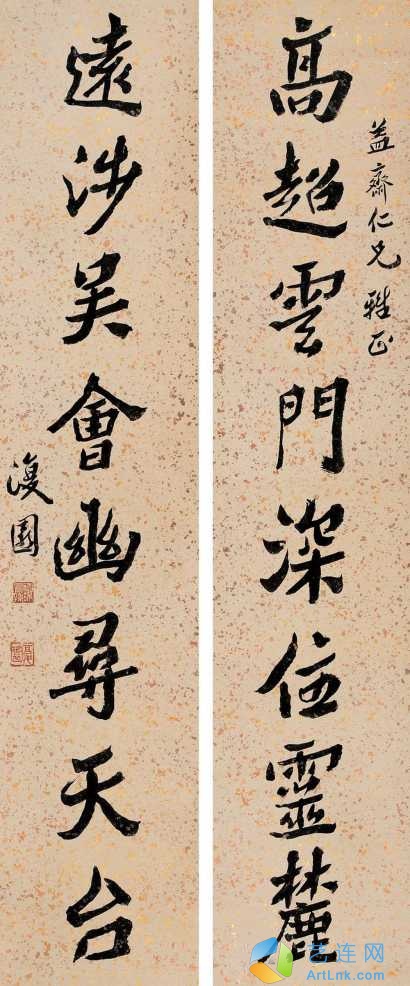 益齋仁兄雅正
高超雲門深住靈麓
遠涉吳會幽尋天台
復園
艺连网
ArtLnk.com